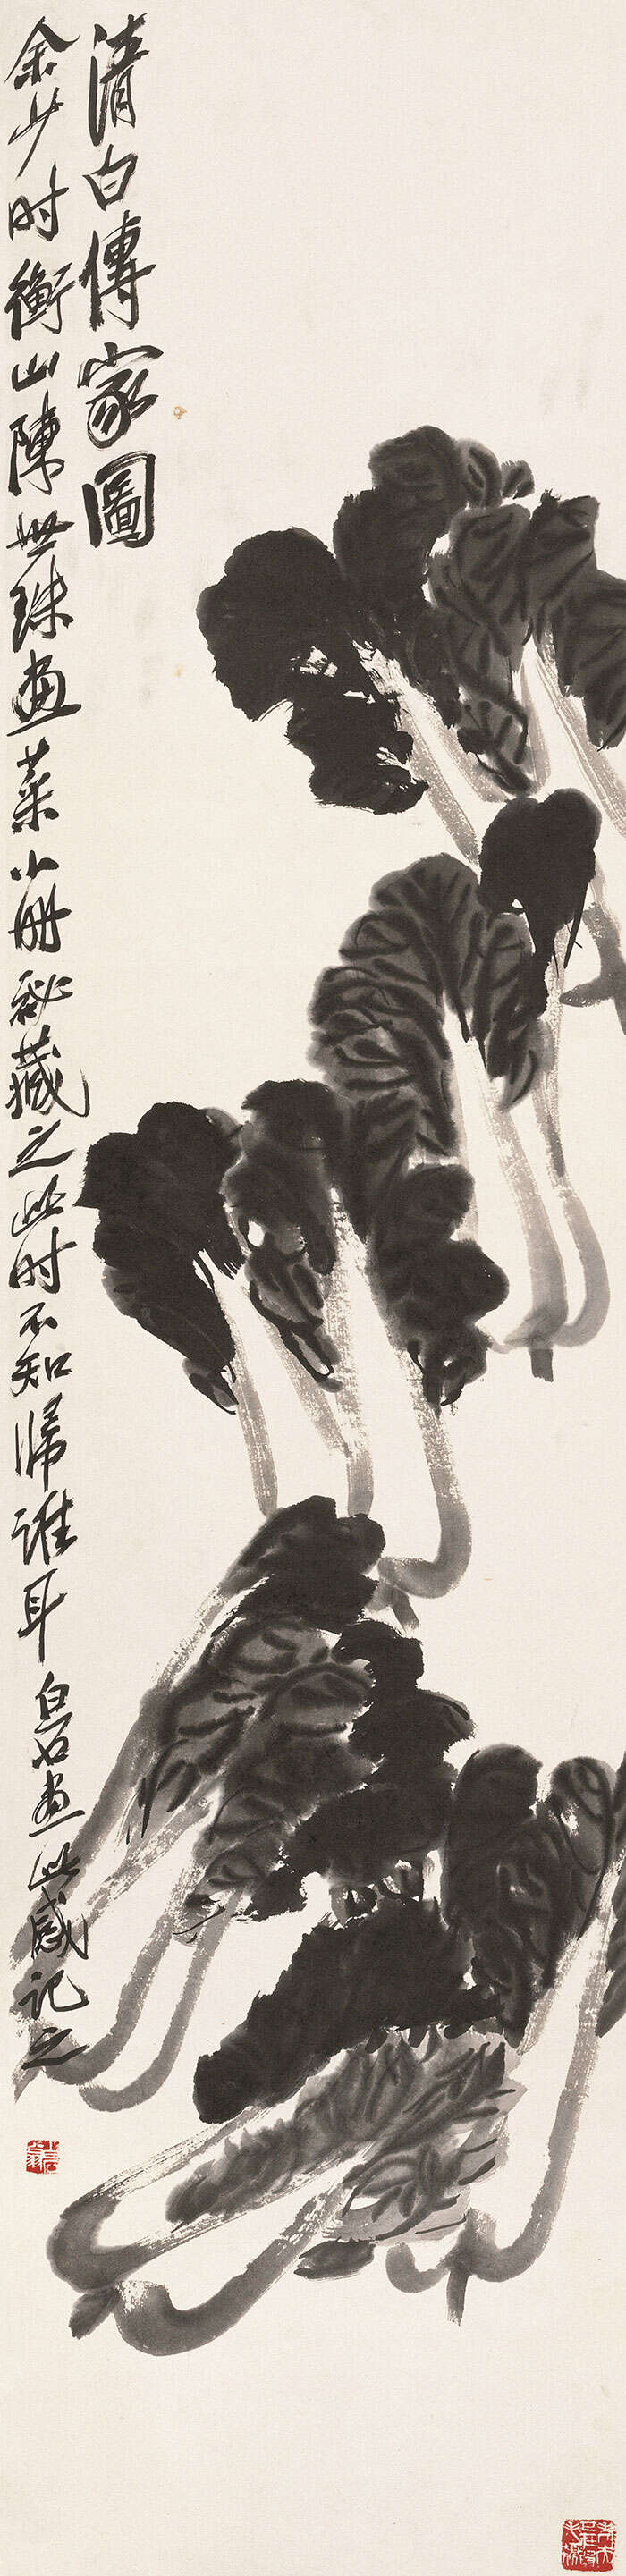 清白傳家圖
余少时衡山陳世珠畫菜小册秘藏之此时不知歸誰耳
白石畫此感記之